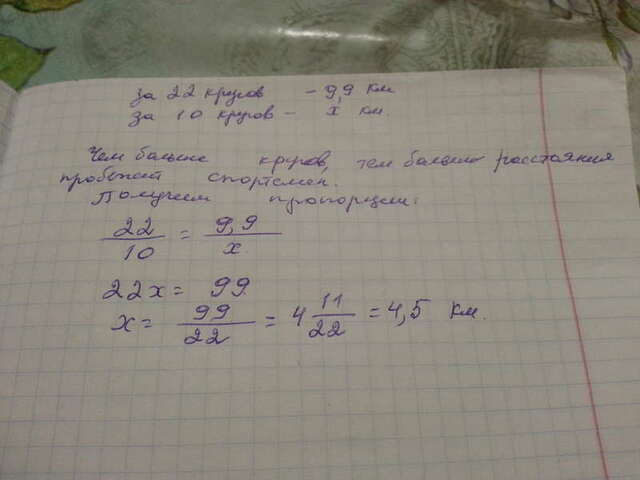 за 22 кругов - 9,9 км
за 10 кругов - x км.
Чем больше кругов, тем больше расстояния
пробежит спортсмен.
Получим пропорции:
22/10 = 9,9/x
22x = 99
x = 99/22 = 4 11/22 = 4,5 км.